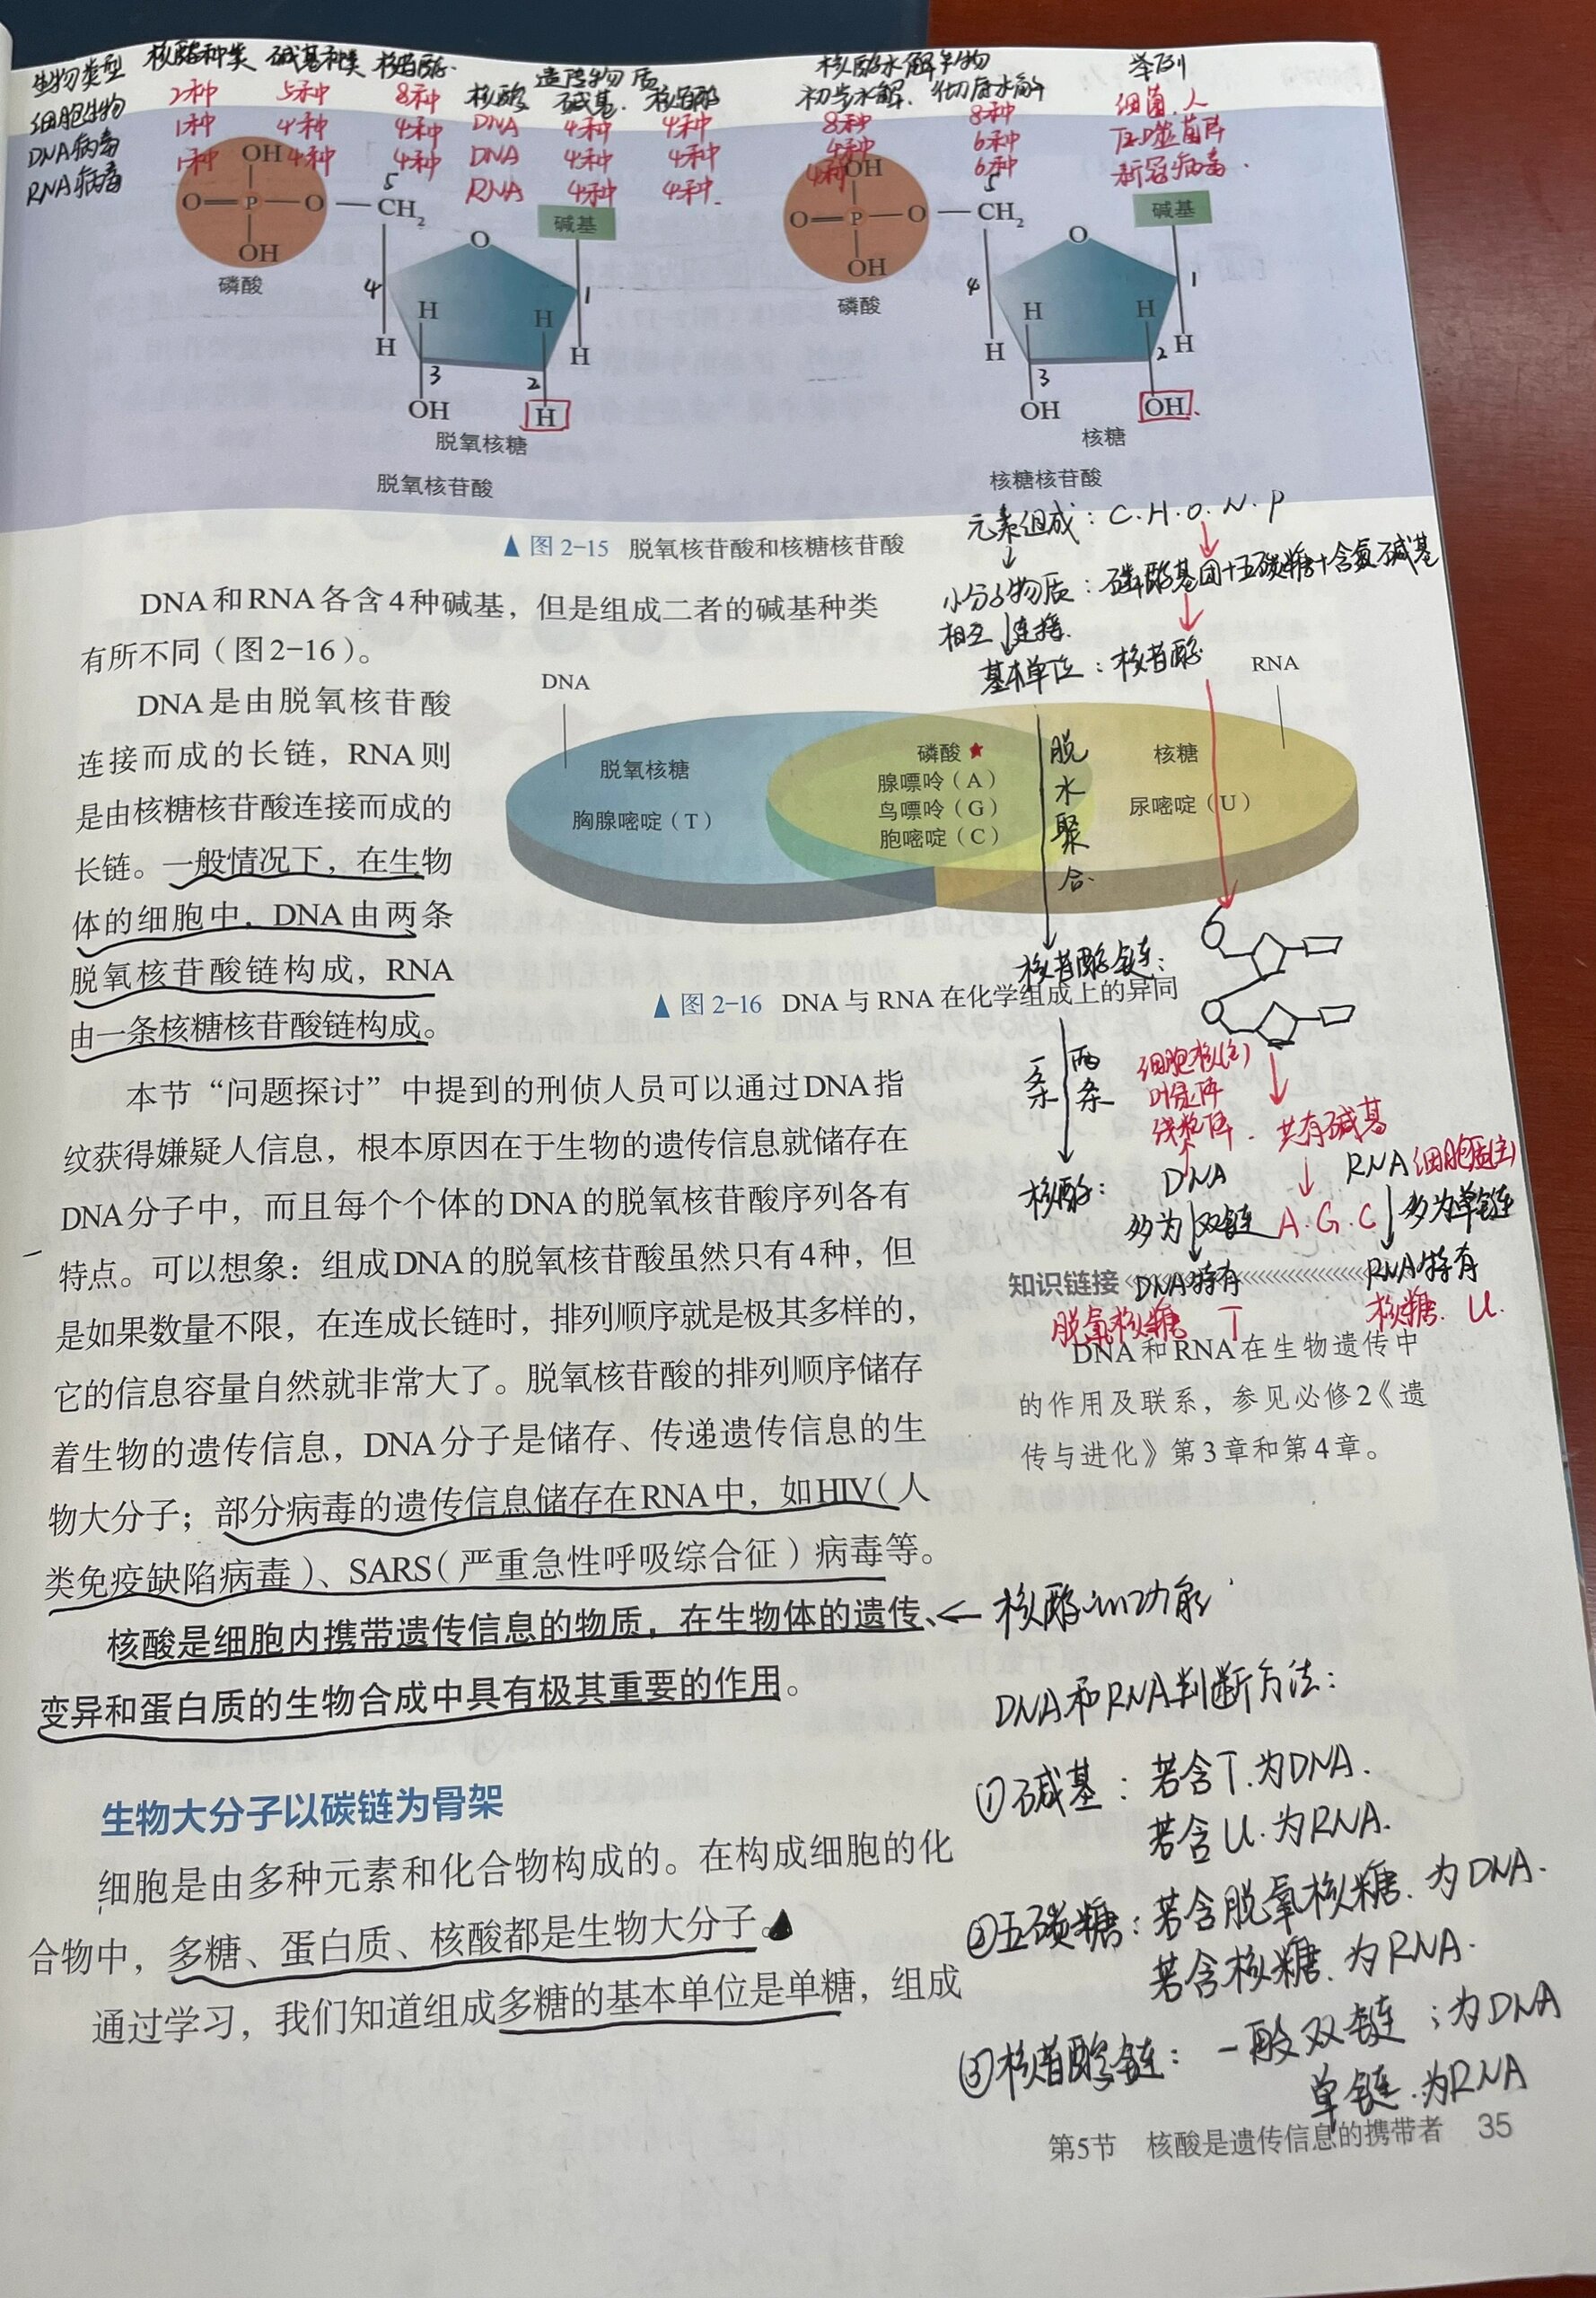 生物类型 核酸种类 碱基种类 核苷酸 遗传物质 核酸水解产物 举例
核酸 碱基 核苷酸 初步水解 彻底水解
细胞生物 2种 5种 8种 DNA 4种 4种 8种 8种 细菌、人
DNA病毒 1种 4种 4种 DNA 4种 4种 4种 6种 T2噬菌体
RNA病毒 1种 4种 4种 RNA 4种 4种 4种 6种 新冠病毒
OH
O P O 5 CH₂
OH
磷酸
碱基
O
4 1
H H
H H
3 2
OH H
脱氧核糖
脱氧核苷酸
OH
O P O 5 CH₂
OH
磷酸
碱基
O
4 1
H H
H H
3 2
OH OH
核糖
核糖核苷酸
▲图2-15 脱氧核苷酸和核糖核苷酸
元素组成：C.H.O.N.P
小分子物质：磷酸基团+五碳糖+含氮碱基
相互连接
基本单位：核苷酸
DNA和RNA各含4种碱基，但是组成二者的碱基种类
有所不同（图2-16）。
DNA是由脱氧核苷酸
连接而成的长链，RNA则
是由核糖核苷酸连接而成的
长链。一般情况下，在生物
体的细胞中，DNA由两条
脱氧核苷酸链构成，RNA
由一条核糖核苷酸链构成。
DNA
RNA
脱氧核糖
胸腺嘧啶（T）
磷酸
腺嘌呤（A）
鸟嘌呤（G）
胞嘧啶（C）
核糖
尿嘧啶（U）
脱水聚合
核苷酸链：
▲图2-16 DNA与RNA在化学组成上的异同
一条 两条
细胞核(主)
叶绿体
线粒体
共有碱基
核酸： DNA RNA 细胞质(主)
多为双链 A.G.C 多为单链
DNA特有 RNA特有
脱氧核糖 T 核糖. U.
本节“问题探讨”中提到的刑侦人员可以通过DNA指
纹获得嫌疑人信息，根本原因在于生物的遗传信息就储存在
DNA分子中，而且每个个体的DNA的脱氧核苷酸序列各有
特点。可以想象：组成DNA的脱氧核苷酸虽然只有4种，但
是如果数量不限，在连成长链时，排列顺序就是极其多样的，
它的信息容量自然就非常大了。脱氧核苷酸的排列顺序储存
着生物的遗传信息，DNA分子是储存、传递遗传信息的生
物大分子；部分病毒的遗传信息储存在RNA中，如HIV（人
类免疫缺陷病毒）、SARS（严重急性呼吸综合征）病毒等。
核酸是细胞内携带遗传信息的物质，在生物体的遗传、
变异和蛋白质的生物合成中具有极其重要的作用。
知识链接
DNA和RNA在生物遗传中
的作用及联系，参见必修2《遗
传与进化》第3章和第4章。
核酸的功能
DNA和RNA判断方法：
①碱基：若含T.为DNA.
若含U.为RNA.
②五碳糖：若含脱氧核糖.为DNA.
若含核糖.为RNA.
③核苷酸链：一般双链；为DNA
单链.为RNA
生物大分子以碳链为骨架
细胞是由多种元素和化合物构成的。在构成细胞的化
合物中，多糖、蛋白质、核酸都是生物大分子。
通过学习，我们知道组成多糖的基本单位是单糖，组成
第5节 核酸是遗传信息的携带者 35